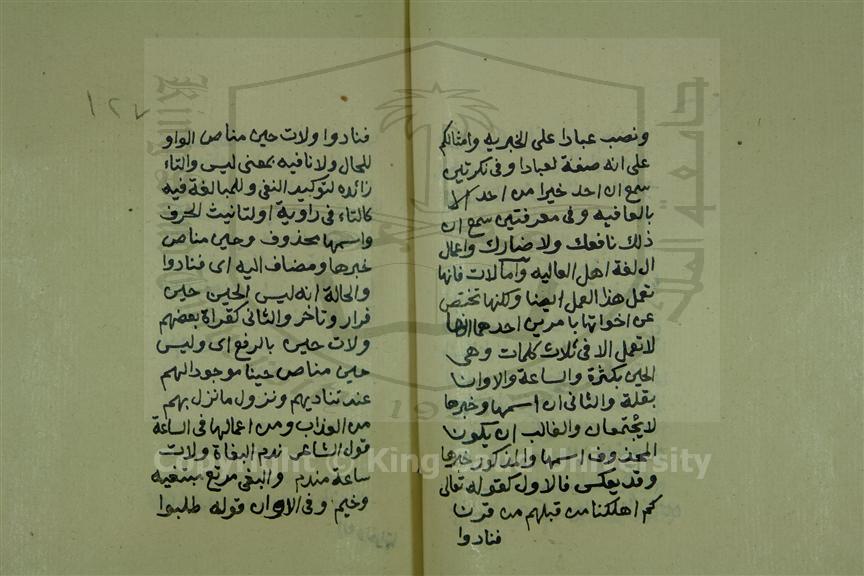 ونصب عبادا على الخبريه وامثالكم
على انه صفة لعبادا وفى نكرتين
سمع ان احد خيرا من احد الا
بالعافيه وفى معرفتين سمع ان
ذلك نافعك ولا ضارك واعمال
ان لغة اهل العاليه وأما لات فانها
تعمل هذا العمل ايضا ولكنها تختص
عن اخواتها بامرين احدهما انها
لا تعمل الا فى ثلاث كلمات وهى
الحين بكثرة والساعة والاوان
بقلة والثانى ان اسمها وخبرها
لا يجتمعان والغالب ان يكون
المحذوف اسمها والمذكور خبرها
وقد يعكس فالاول كقوله تعالى
كم اهلكنا من قبلهم من قرن
فنادوا
١٢٧
فنادوا ولات حين مناص الواو
للحال ولا نافيه بمعنى ليس والتاء
زائده لتوكيد النفى وللمبالغة فيه
كالتاء فى راوية او لتانيث الحرف
واسمها محذوف وحين مناص
خبرها ومضاف اليه اى فنادوا
والحالة انه ليس الحين حين
فرار وتاخر والثانى كقراة بعضهم
ولات حين بالرفع اى وليس
حين مناص حينا موجود الهم
عند تناديهم ونزول ما نزل بهم
من العذاب ومن اعمالها فى الساعة
قول الشاعر ندم البغاة ولات
ساعة مندم والبغى مرتع مبتغيه
وخيم وفى الاوان قوله طلبوا
Copyright © King Saud University
جامعة الملك سعود
19